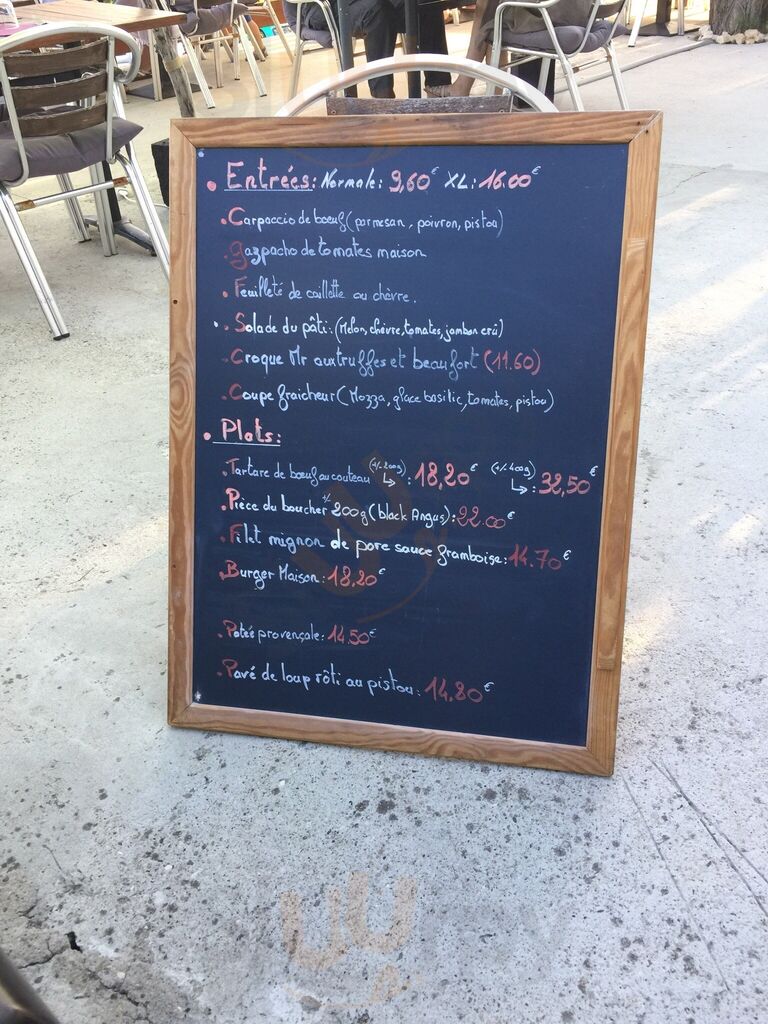 • Entrées: Normale: 9,60€ XL: 16.00€
. Carpaccio de bœuf (parmesan, poivron, pistou)
. Gazpacho de tomates maison
. Feuilleté de caillette au chèvre.
. Salade du pâti: (Melon, chèvre, tomates, jambon crû)
. Croque Mr aux truffes et beaufort (11.60)
. Coupe fraicheur (Mozza, glace basilic, tomates, pistou)
• Plats:
. Tartare de bœuf au couteau (+/-200g) ↳: 18,20€ (+/-400g) ↳: 32,50€
. Pièce du boucher +/- 200g (black Angus): 22.00€
. Filet mignon de porc sauce framboise: 14.70€
. Burger Maison: 18,20€
. Patée provençale: 14.50€
. Pavé de loup rôti au pistou: 14.80€